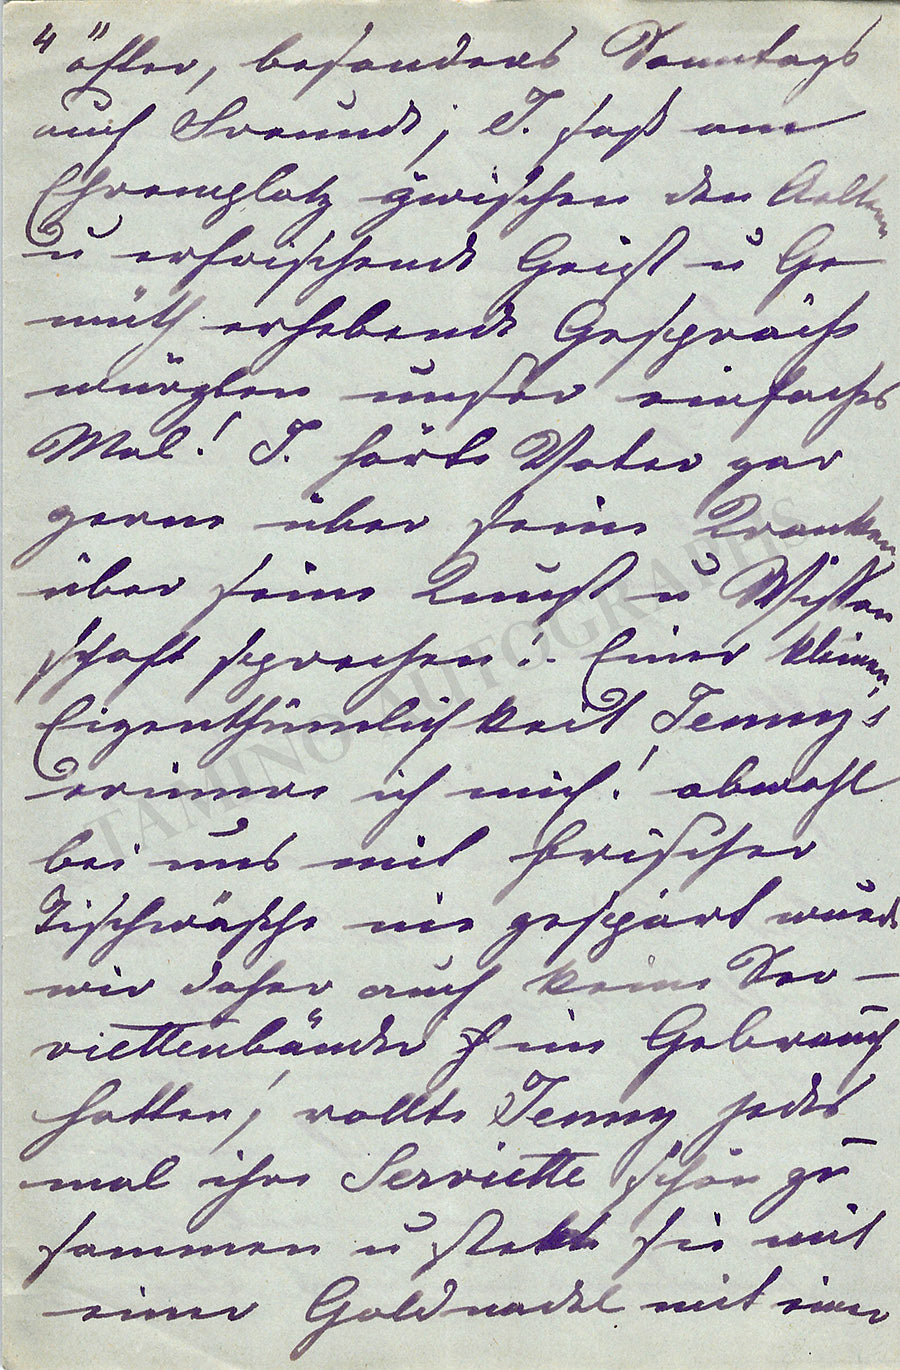 4 öfter, besonders Sonntags
auch Freunde; J. saß am
Ehrenplatz zwischen den Aeltern
u erfrischende Geist u Ge
müth erhebende Gespräche
würzten unser einfaches
Mal! J. hörte Vater gar
gerne über seine Kranken
über seine Kunst u Wissen
schaft sprechen!. Einer kleinen
Eigenthümlichkeit Jenny's
erinnre ich mich! obwohl
bei uns mit frischer
Tischwäsche nie gespart wurde
wir daher auch keine Ser—
viettenbänder im Gebrauch
hatten, rollte Jenny jedes
mal ihre Serviette schön zu
sammen u steckte sie mit
einer Goldnadel mit einer
TAMINO AUTOGRAPHS